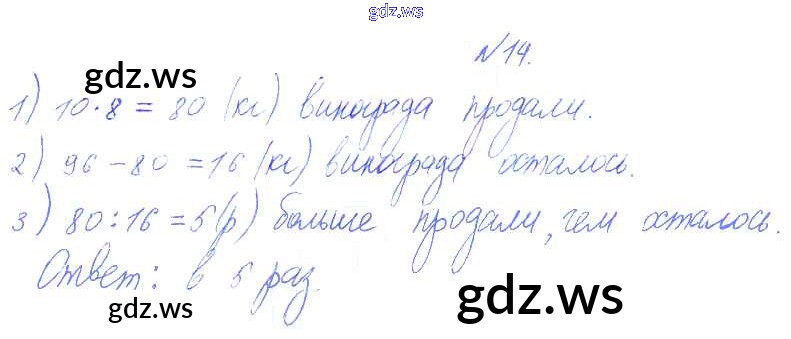 gdz.ws
№14.
gdz.ws
1) 10·8 = 80 (кг) винограда продали.
2) 96 – 80 = 16 (кг) винограда осталось.
3) 80:16 = 5 (р) больше продали, чем осталось.
Ответ: в 5 раз.
gdz.ws
gdz.ws